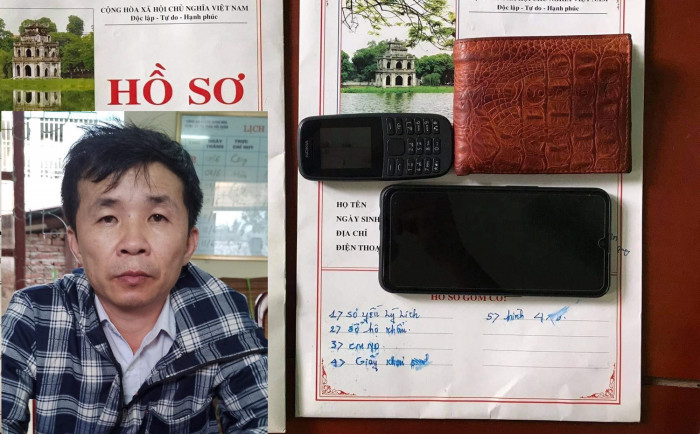 CỘNG HÒA XÃ HỘI CHỦ NGHĨA VIỆT NAM
Độc lập - Tự do - Hạnh phúc
HỒ SƠ
LỊCH
Độc lập - Tự do - Hạnh phúc
HỌ TÊN
NGÀY SINH
ĐỊA CHỈ
ĐIỆN THOẠ
HỒ SƠ GỒM CÓ:
1> Sơ yếu lý lịch
2> Sổ hộ khẩu
3> CMND
4> Giấy khai
5> hình 4